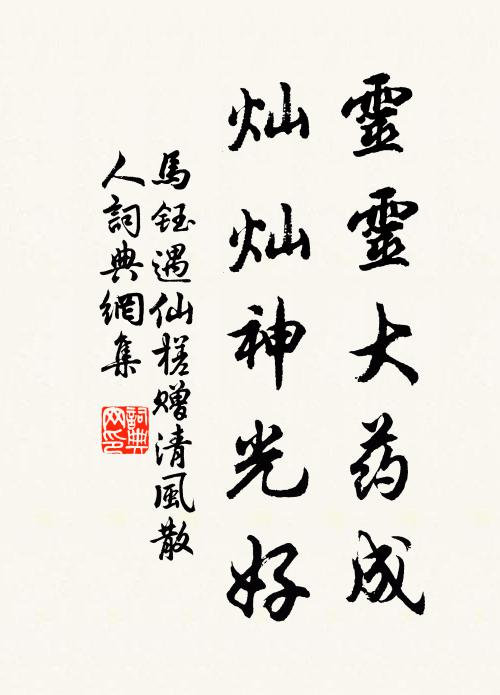 靈靈大药成
灿灿神光好
馬鈺遇仙槎赠清風散
人詞典網集
詞典
网印